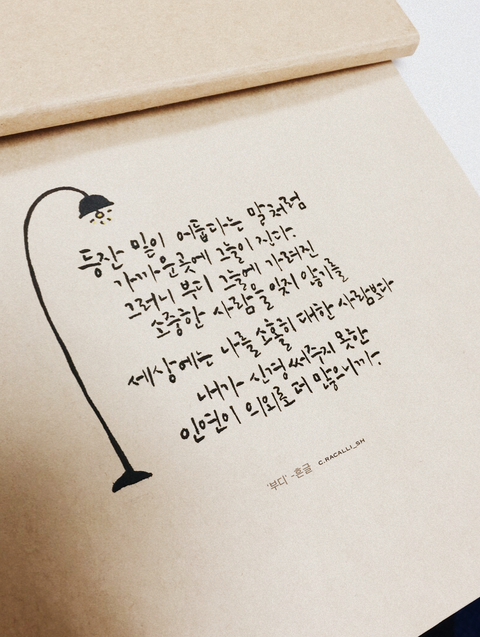 등잔 밑이 어둡다는 말처럼
가까운곳에 그늘이 진다.
그러니 부디 그늘에 가려진
소중한 사람을 잊지 않기를
세상에는 나를 소홀히 대한 사람보다
내가 신경써주지 못한
인연이 의외로 더 많으니까.
'부디' -흔글 C.RACALLI_SH